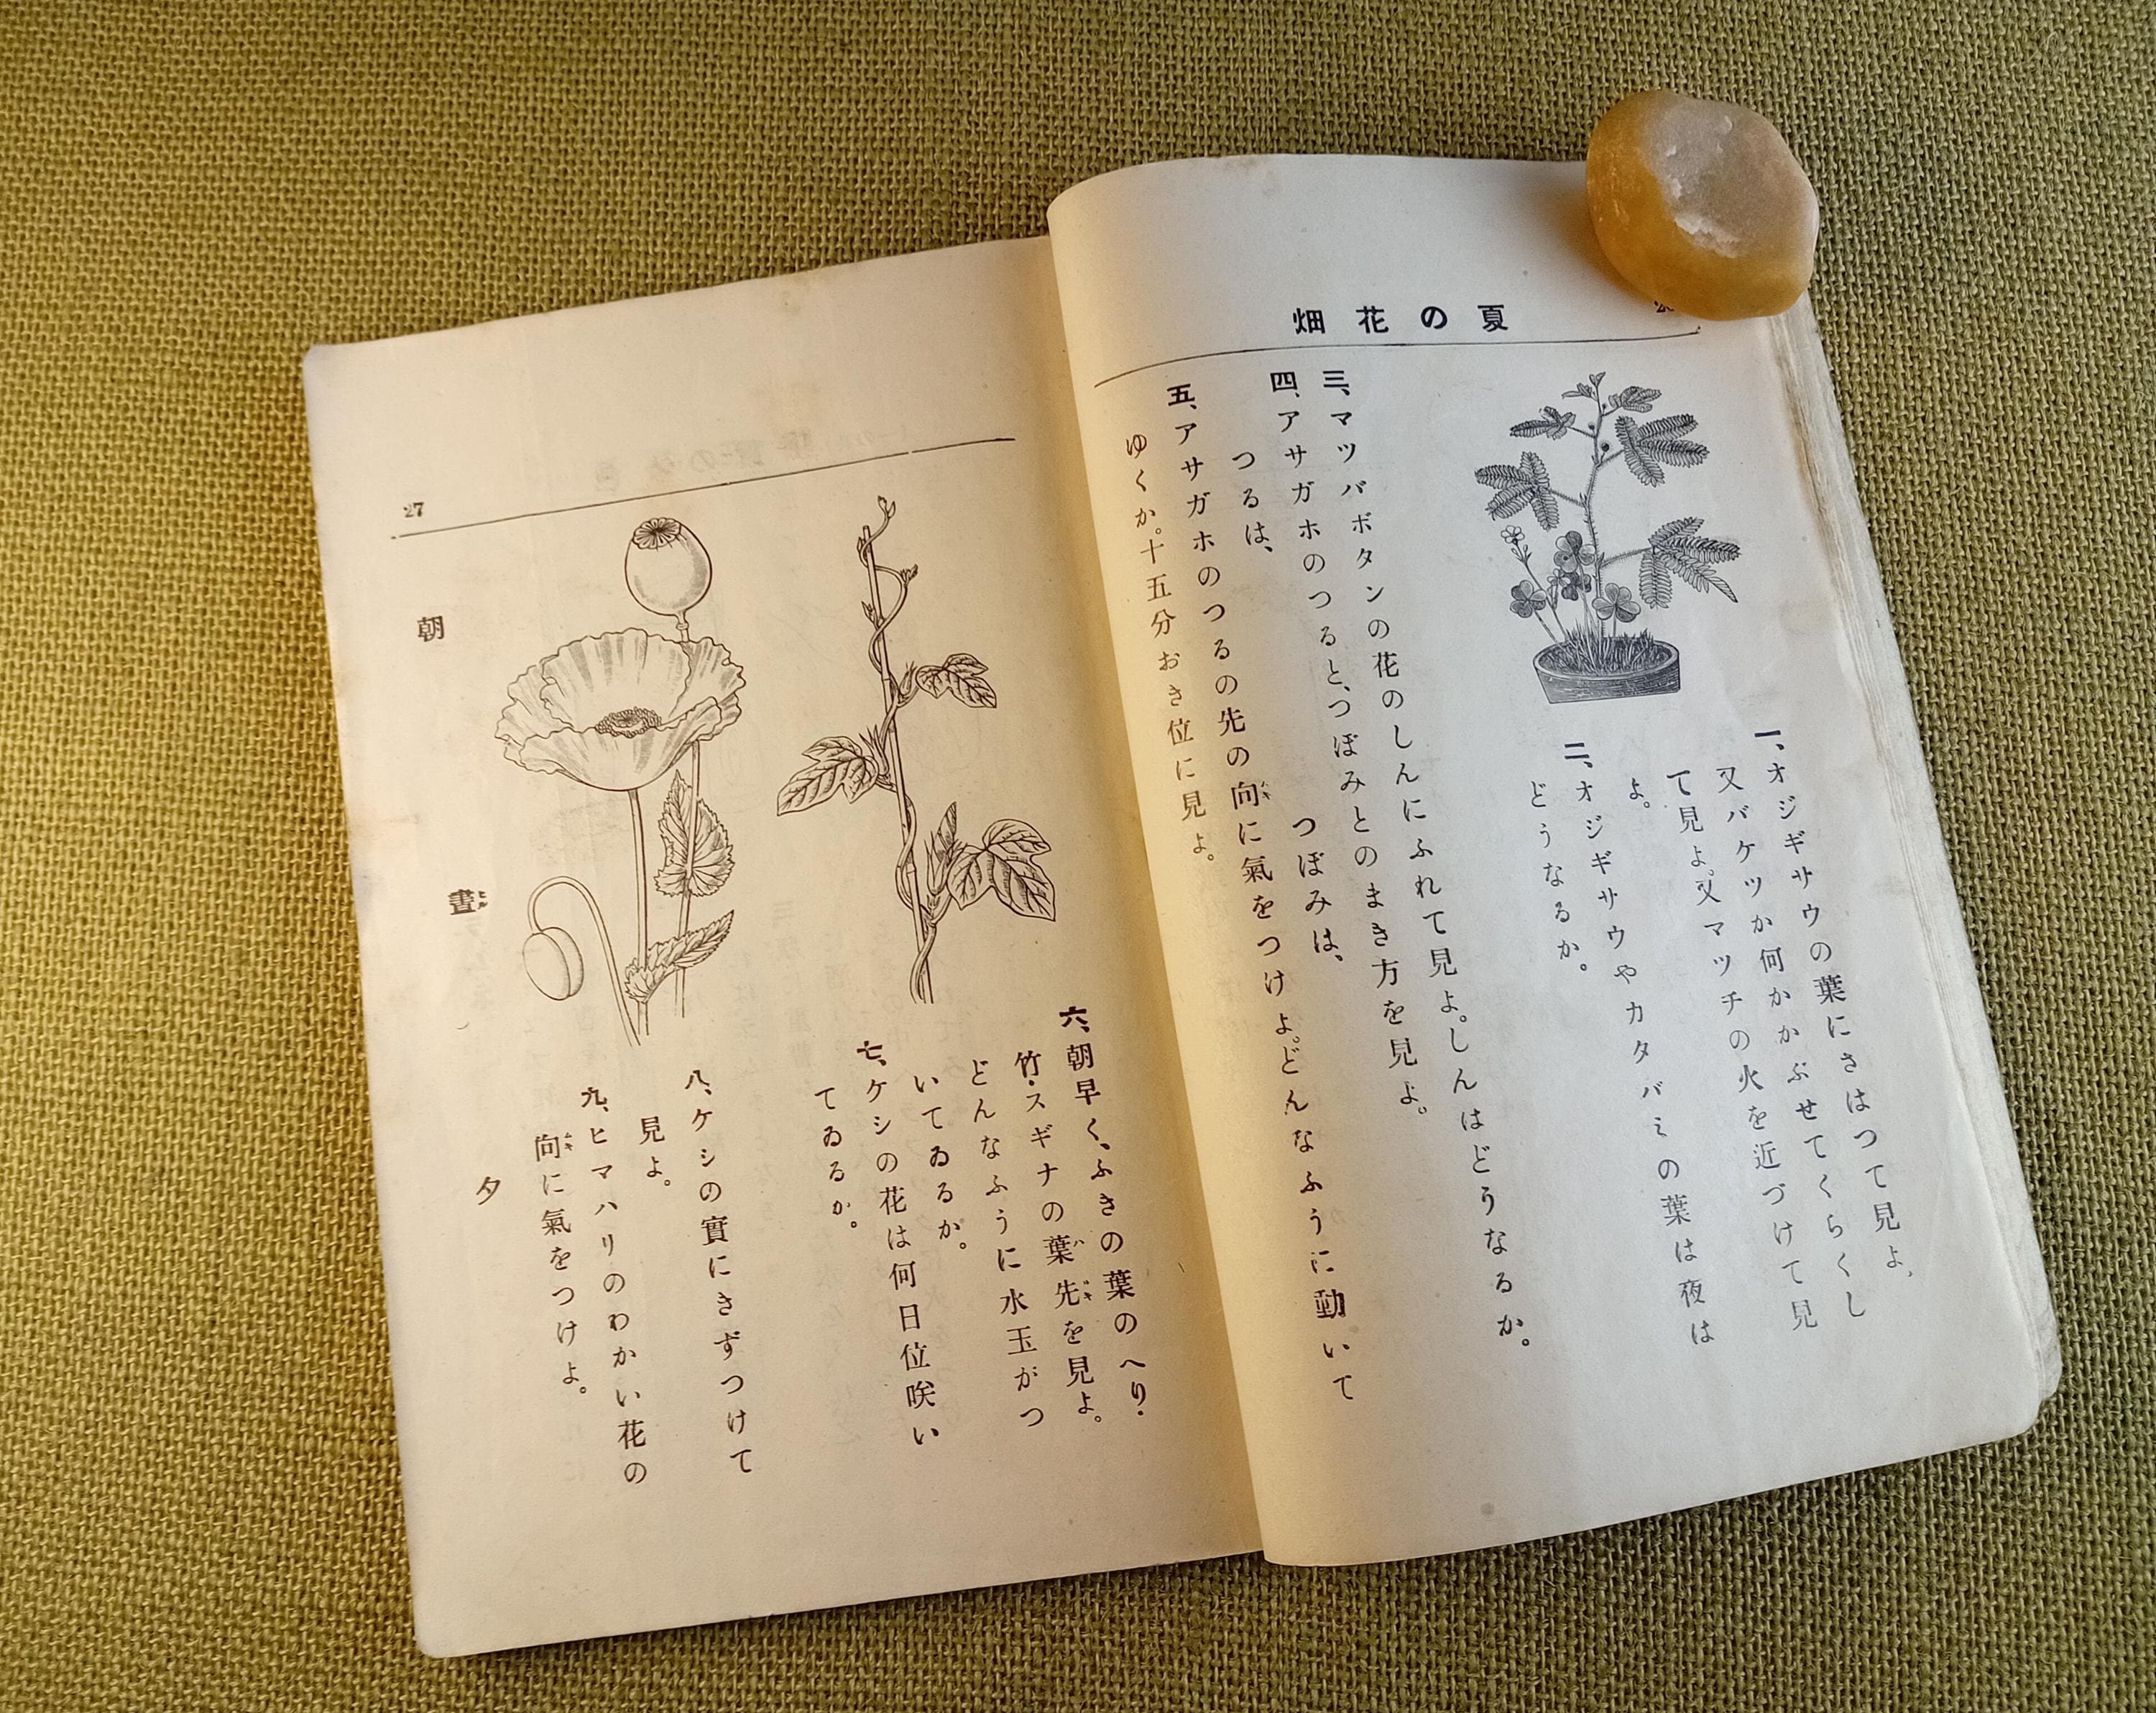 夏の花畑
一、オジギサウの葉にさはつて見よ、
又バケツか何かかぶせてくらくし
て見よ。又マツチの火を近づけて見
よ。
二、オジギサウやカタバミの葉は夜は
どうなるか。
三、マツバボタンの花のしんにふれて見よ。しんはどうなるか。
四、アサガホのつると、つぼみとのまき方を見よ。
つるは、 つぼみは、
五、アサガホのつるの先の向ムキに氣をつけよ。どんなふうに動いて
ゆくか。十五分おき位に見よ。
27
六、朝早く、ふきの葉のへり・
竹・スギナの葉ハ先サキを見よ。
どんなふうに水玉がつ
いてゐるか。
七、ケシの花は何日位咲い
てゐるか。
八、ケシの實にきずつけて
見よ。
九、ヒマハリのわかい花の
向ムキに氣をつけよ。
朝 晝ヒル 夕